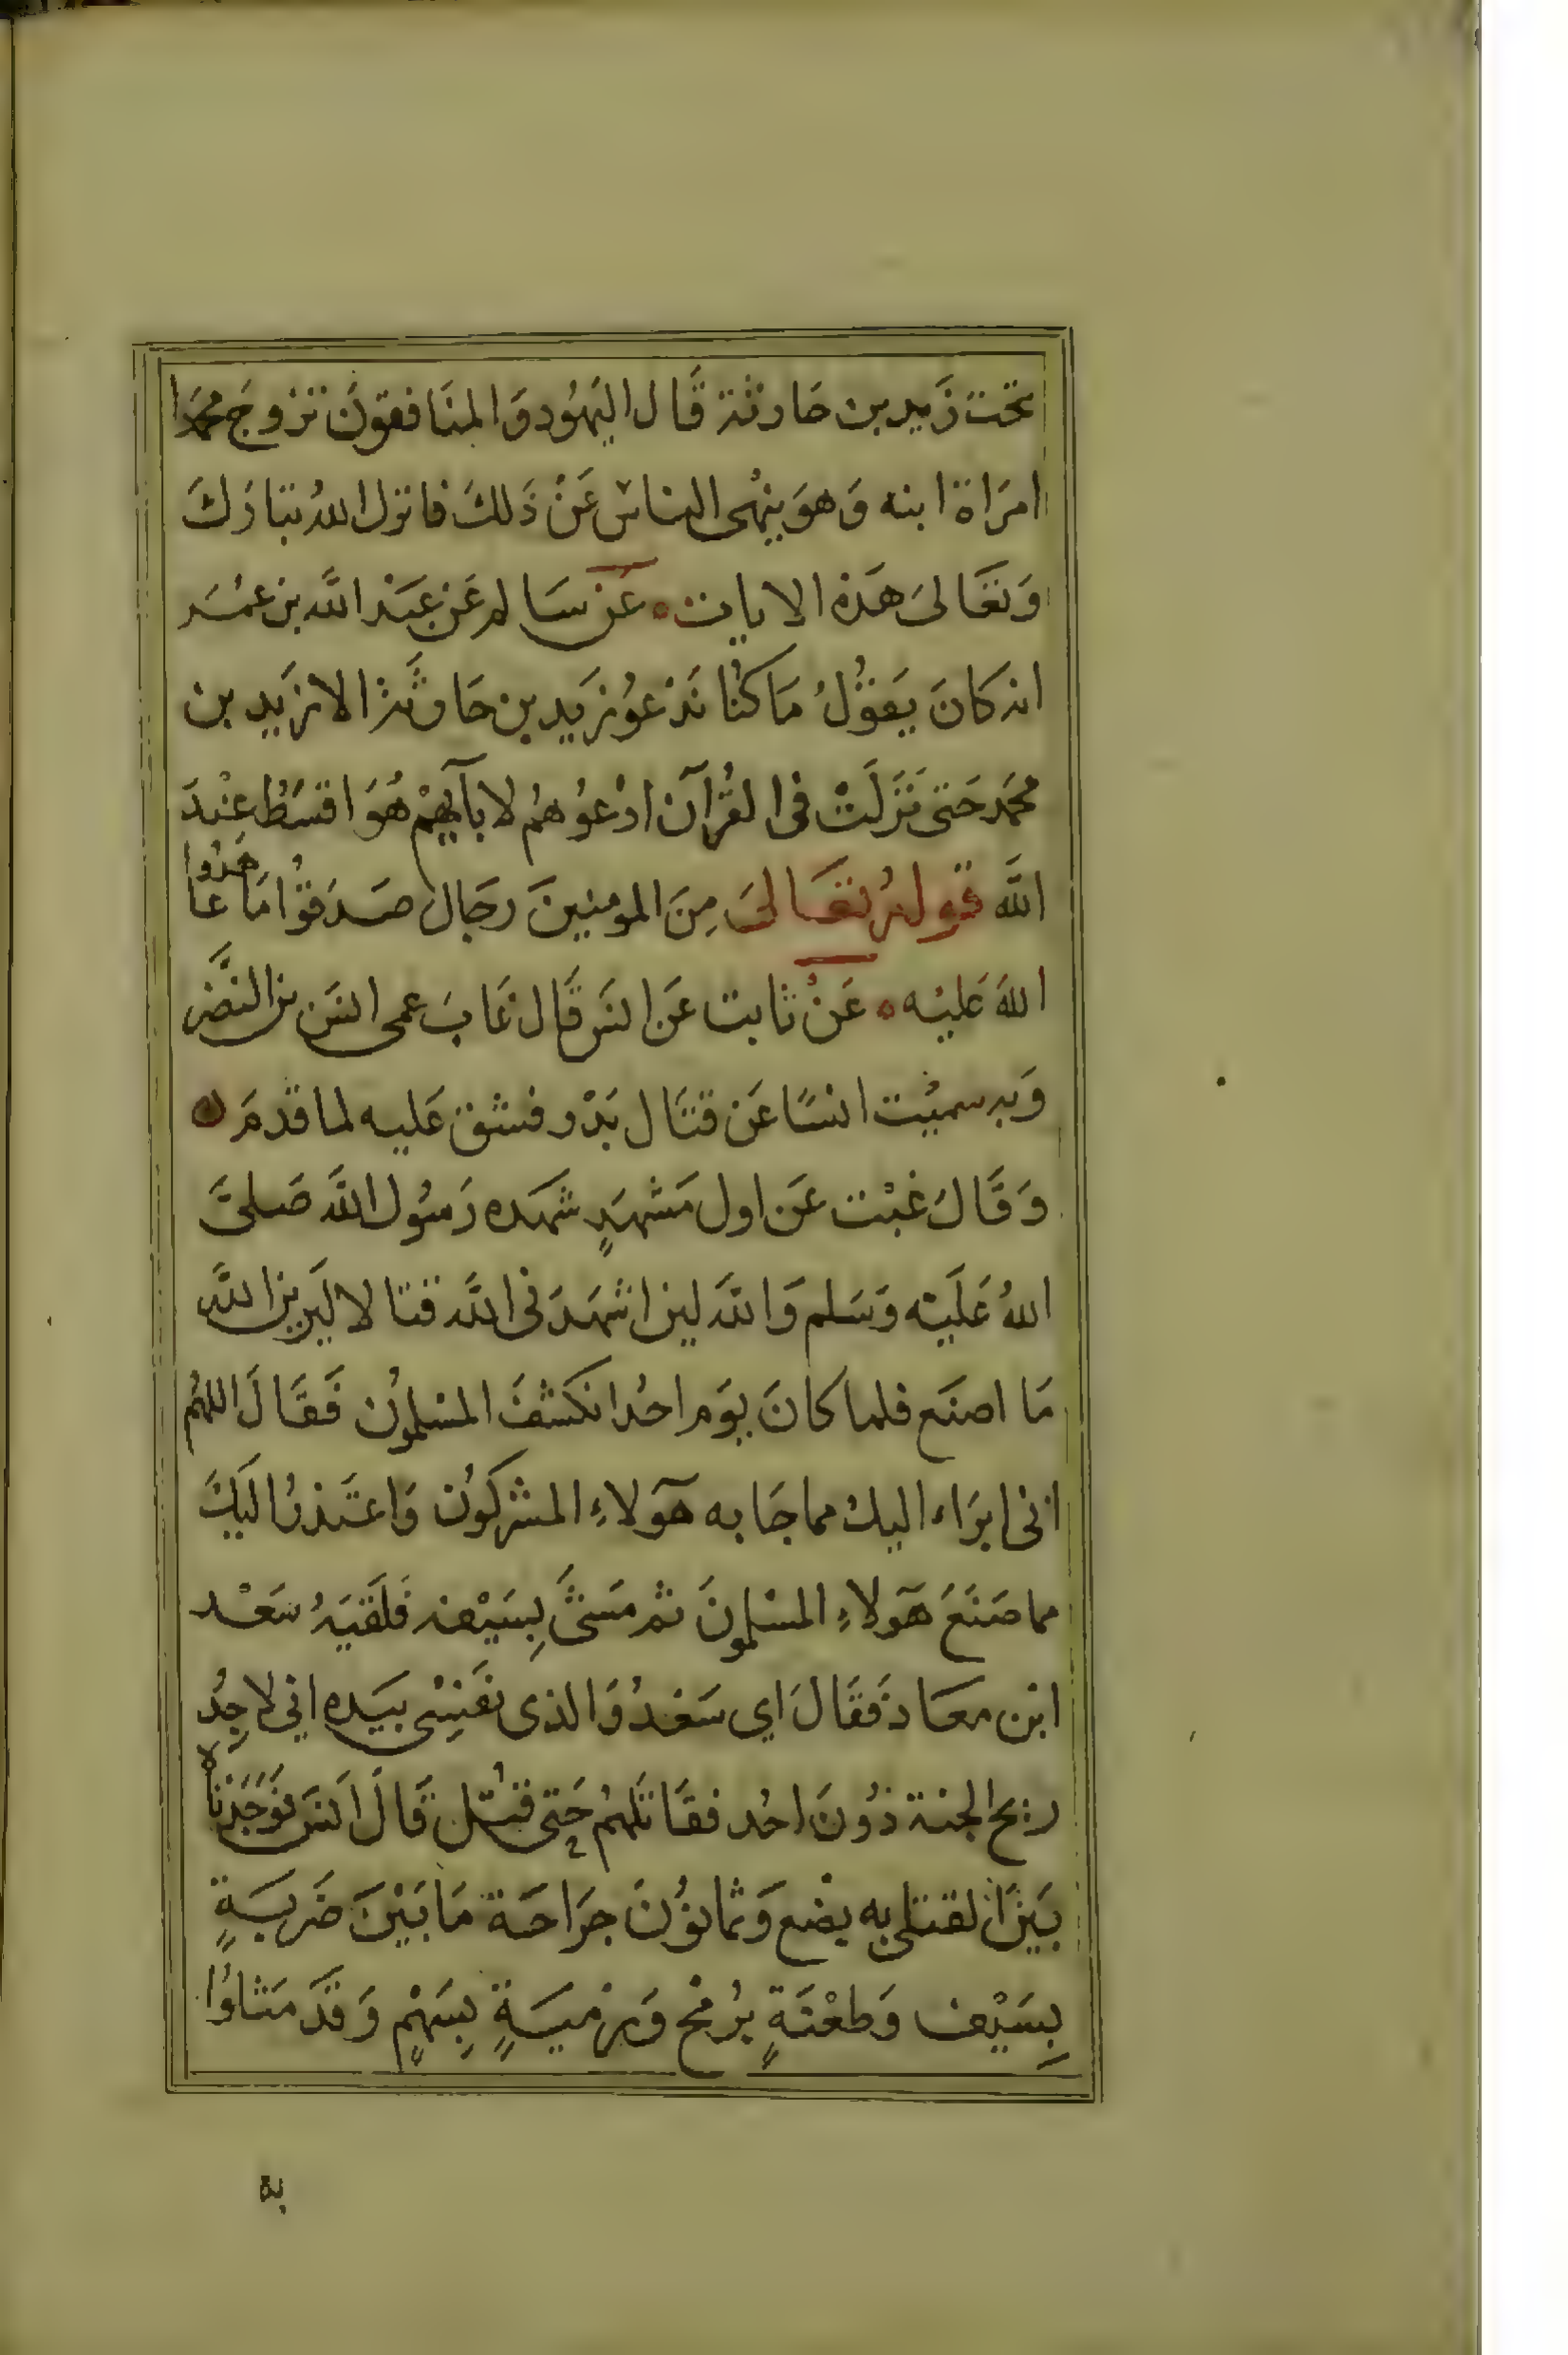 تحت زَيد بن حَارثة قَال اليَهُود وَالمنَافقونَ تزوجَ محمدَا
امرَاة ابنه وَهوَ ينهى الناس عَنْ ذَلكَ فانزل اللهُ تبَارَكَ
وَتعَالىَ هَذه الايات ٥ عَن سَالم عَن عَبْد اللَّه بن عمُسَر
انه كانَ يَقوُلُ مَا كنُا نَدْعوُ زَيد بن حَارثَة الا زَيد بن
محمَد حَتى نَزَلَتْ فى القُرآن ادْعوُهمُ لابآيهِمْ هُوَ اقسَطُ عِنْدَ
اللَّه قوله تعَالىَ مِنَ المومنِينَ رجَال صَدَقوُا مَا عاهَدُوا
اللهَ عَليْه ٥ عَنُ ثابت عَن انَس قَال غَابَ عمى انَس بن النَّضْر
وَبه سميُت انسًا عَن قتَال بَدْر فشق عَليه لما قدمَ ٥
وَقَالَ غبْت عَن اول مَشهَدٍ شهَده رَسُول اللَّه صَلىَّ
اللهُ عَلَيْه وَسَلم وَاللَّه لين اشهَدَنى اللَّه قتالا ليَرين اللَّه
مَا اصنَع فلما كانَ يوَم احُد انكشفَ المسْلموُن فَقَالَ اللهُم
انى ابرَاء اليك مما جَا به هَآولاءِ المشركوُن وَاعتَذرُ اليَكَ
مما صَنَعُ هَآولاءِ المسْلموُنَ ثم مَشىَّ بِسَيْفه فلَقيَهُ سَعْد
ابْن معَاذ فَقَالَ اي سَعْدُ وَالذى نفَسِى بيَده اني لاجِدُ
ريح الجنة دُونَ احُد فقَاتَلهمُ حَتى قتُل قَالَ انَس فوَجَدْناه
بَينَ القتلى به بضْع وَثمانوُنَ جرَاحَة مَا بَيْنَ ضَربَةٍ
بِسَيْف وَطعْنَةٍ برُمْح وَرَمْيَةٍ بِسَهْمٍ وَقدَ مَثلوُا
به